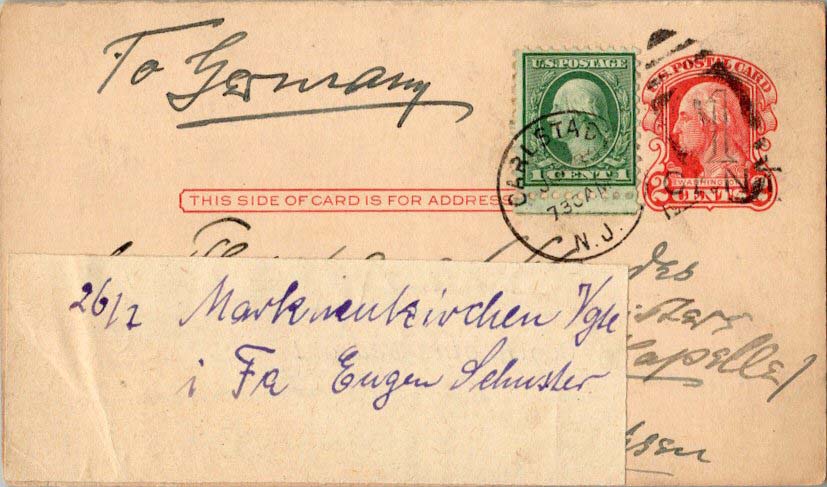 To Germany
U.S. POSTAGE
1 CENT 1
U.S. POSTAL CARD
WASHINGTON
CENTS
CARLSTADT
730 AM
N.J.
THIS SIDE OF CARD IS FOR ADDRESS
des
Kapelle)
26/2 Markneukirchen Vgtl
i Fa Eugen Schuster